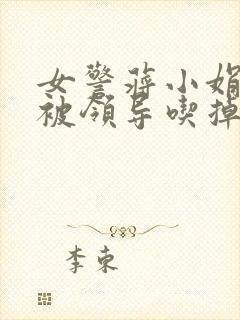 女警蒋小娟
被领导喫掉
李東